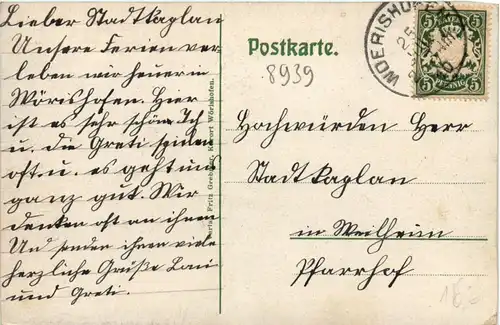 Lieber Stadtkaplan
Unsere Ferien ver
leben wir heuer in
Wörishofen. Hier
ist es sehr schön. Ich
u. die Greti spinnen
oft u. es geht uns
ganz gut. Wir
denken oft an ihnen
Und senden ihnen viele
herzliche Grüße Loni
und Greti.
Fritz Grebmer, Kurort Wörishofen.
Postkarte.
8939
WOERISHOFEN
5 5
5 5
Hochwürden Herr
Stadtkaplan
in Weilheim
Pfarrhof